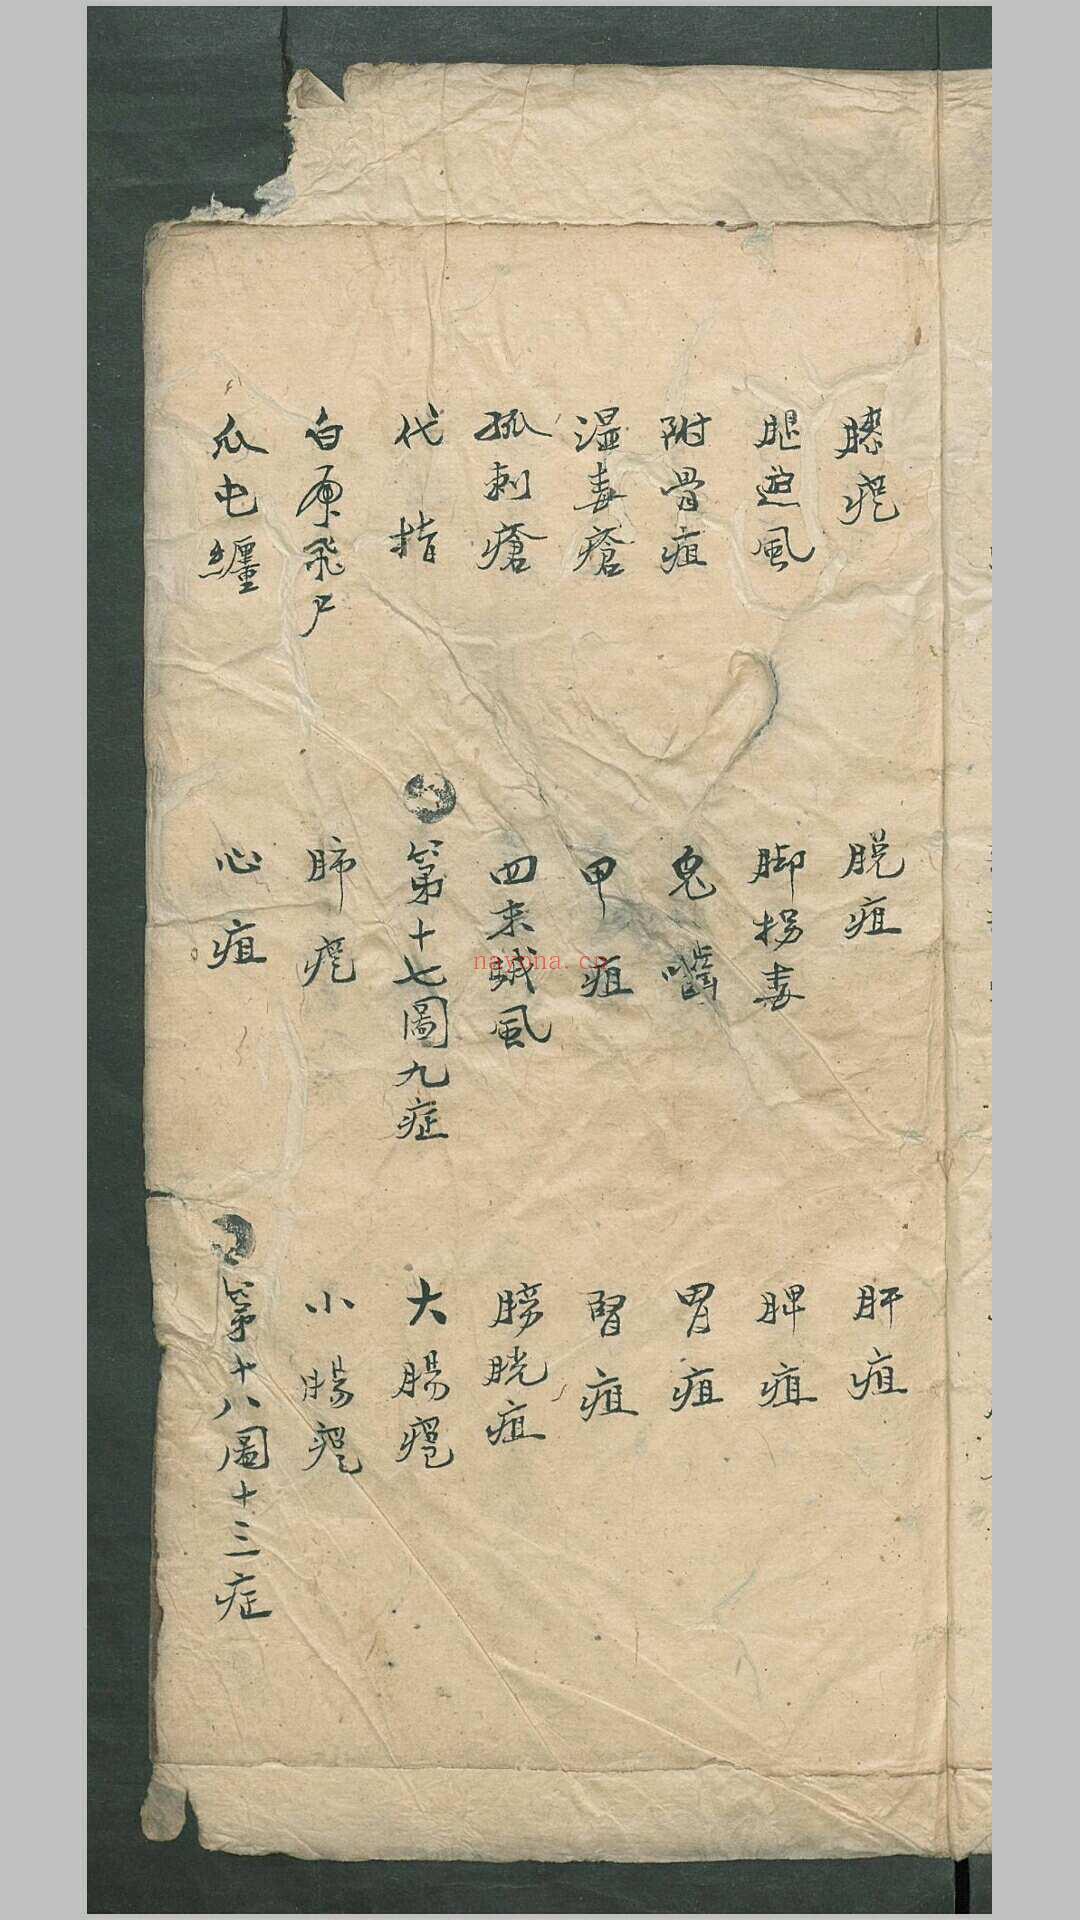 腿遊風
附骨疽
湿毒瘡
孤刺瘡
代指
白飛尸
瓜屯纏
脱疽
脚拐毒
鬼嚙
甲疽
四風
第十七圖九症
肺
心疽
肝疽
脾疽
胃疽
腎疽
膀胱疽
大腸
小腸
第十八圖十三症
nayona.cn